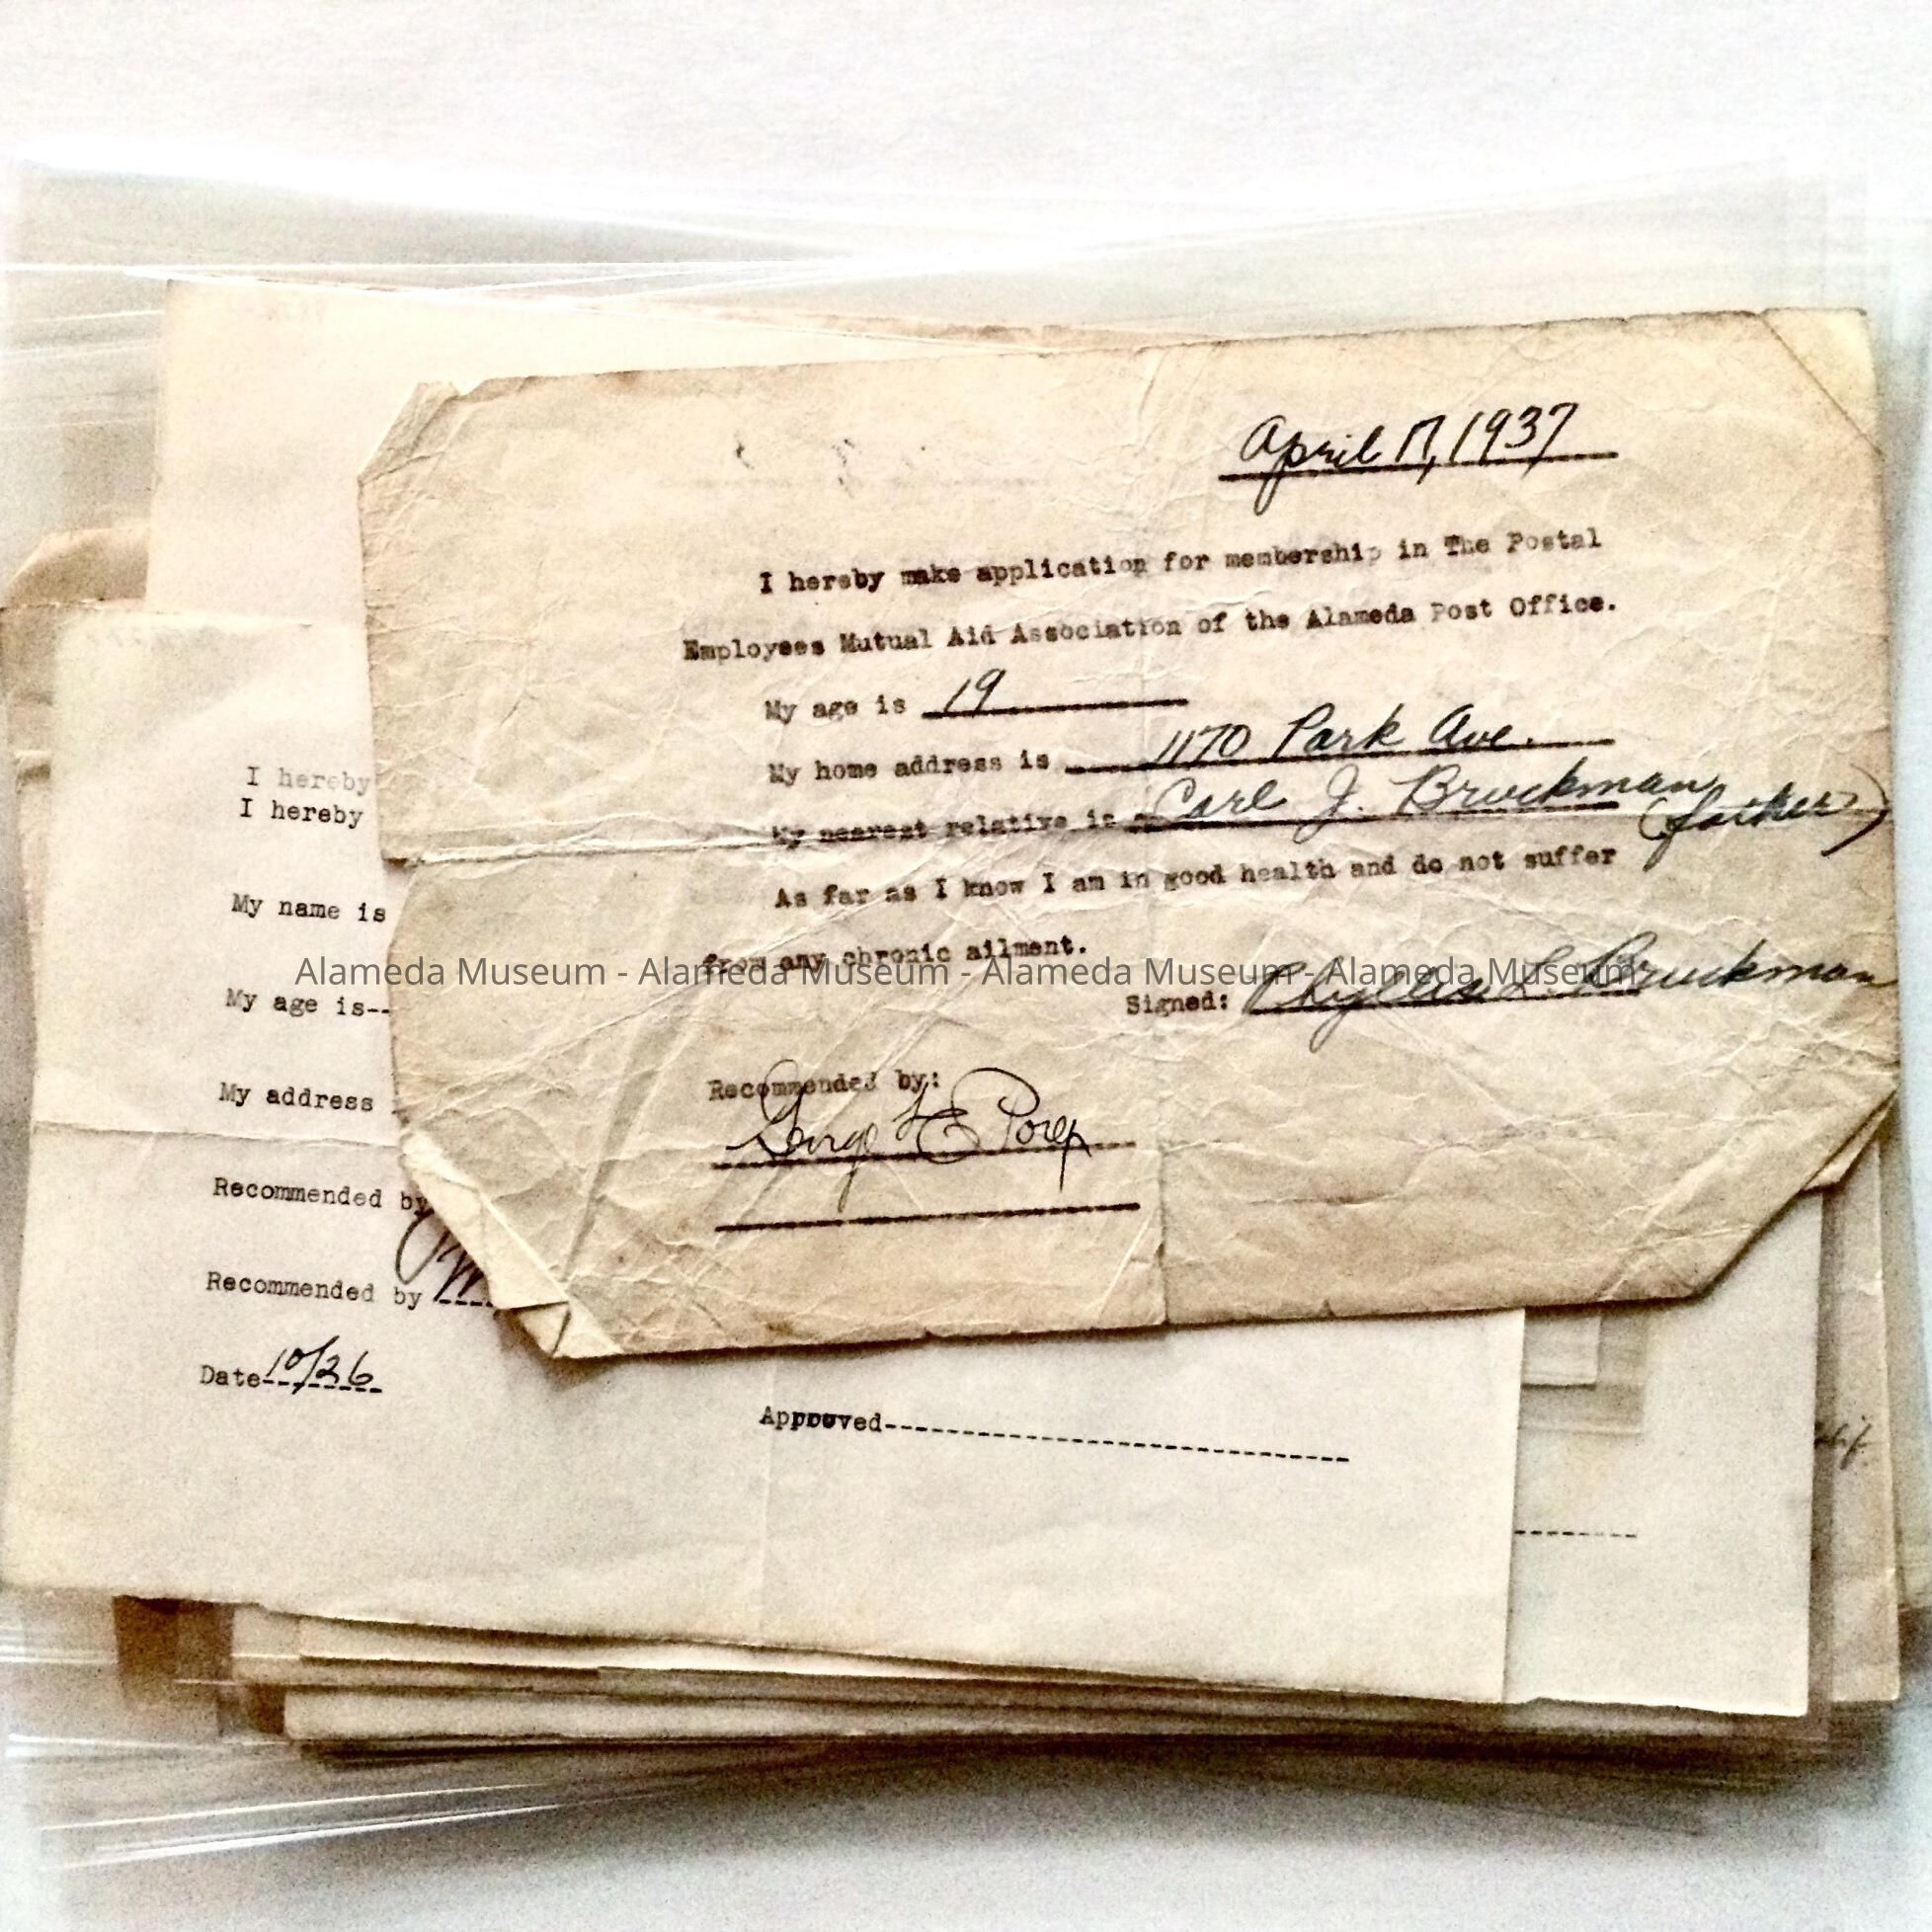 April 17, 1937
I hereby make application for membership in The Postal
Employees Mutual Aid Association of the Alameda Post Office.
My age is 19
My home address is 1170 Park Ave.
My nearest relative is Carl J. Bruckman (father)
As far as I know I am in good health and do not suffer
from any chronic ailment.
Signed: Phyllis L. Bruckman
Recommended by:
George
I hereby
I hereby
My name is
My age is--
My address
Recommended by
Recommended by
Date 10/26
Approved
Alameda Museum - Alameda Museum - Alameda Museum - Alameda Museum